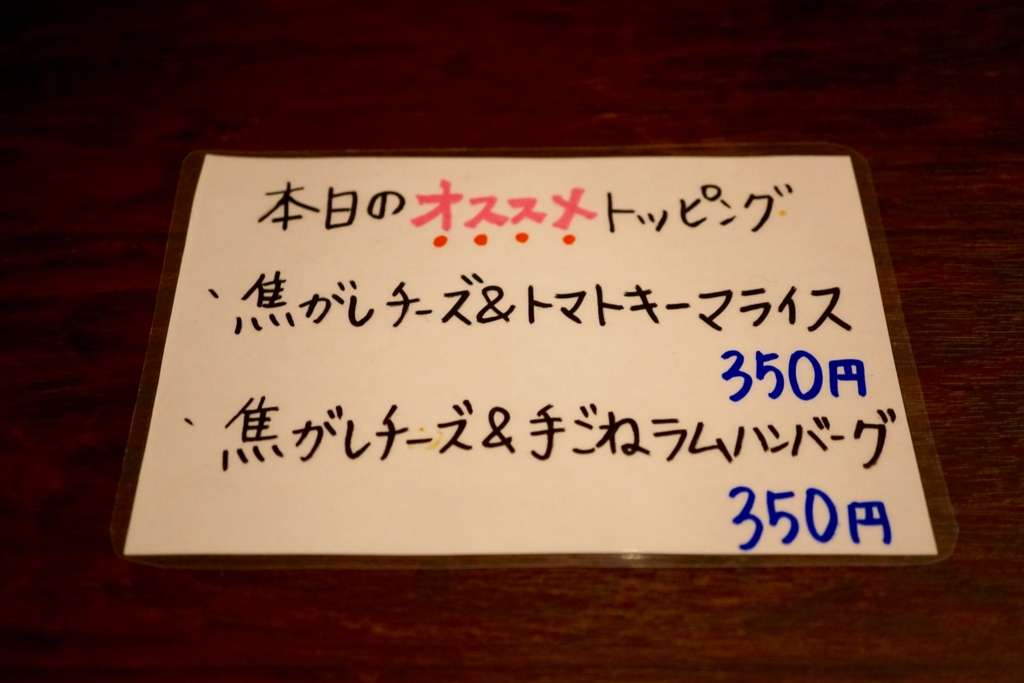 本日のオススメトッピング
、焦がしチーズ&トマトキーマライス
350円
、焦がしチーズ&手ごねラムハンバーグ
350円